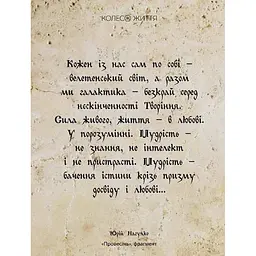 КОЛЕСО ЖИТТЯ
Кожен із нас сам по собі –
велетенський світ, а разом
ми галактика – безкрай серед
нескінченності Творіння.
Сила живого, життя – в любові.
У порозумінні. Мудрість –
не знання, не інтелект
і не пристрасті. Мудрість –
бачення істини крізь призму
досвіду і любові...
Юрій
«Провесінь», фрагмент